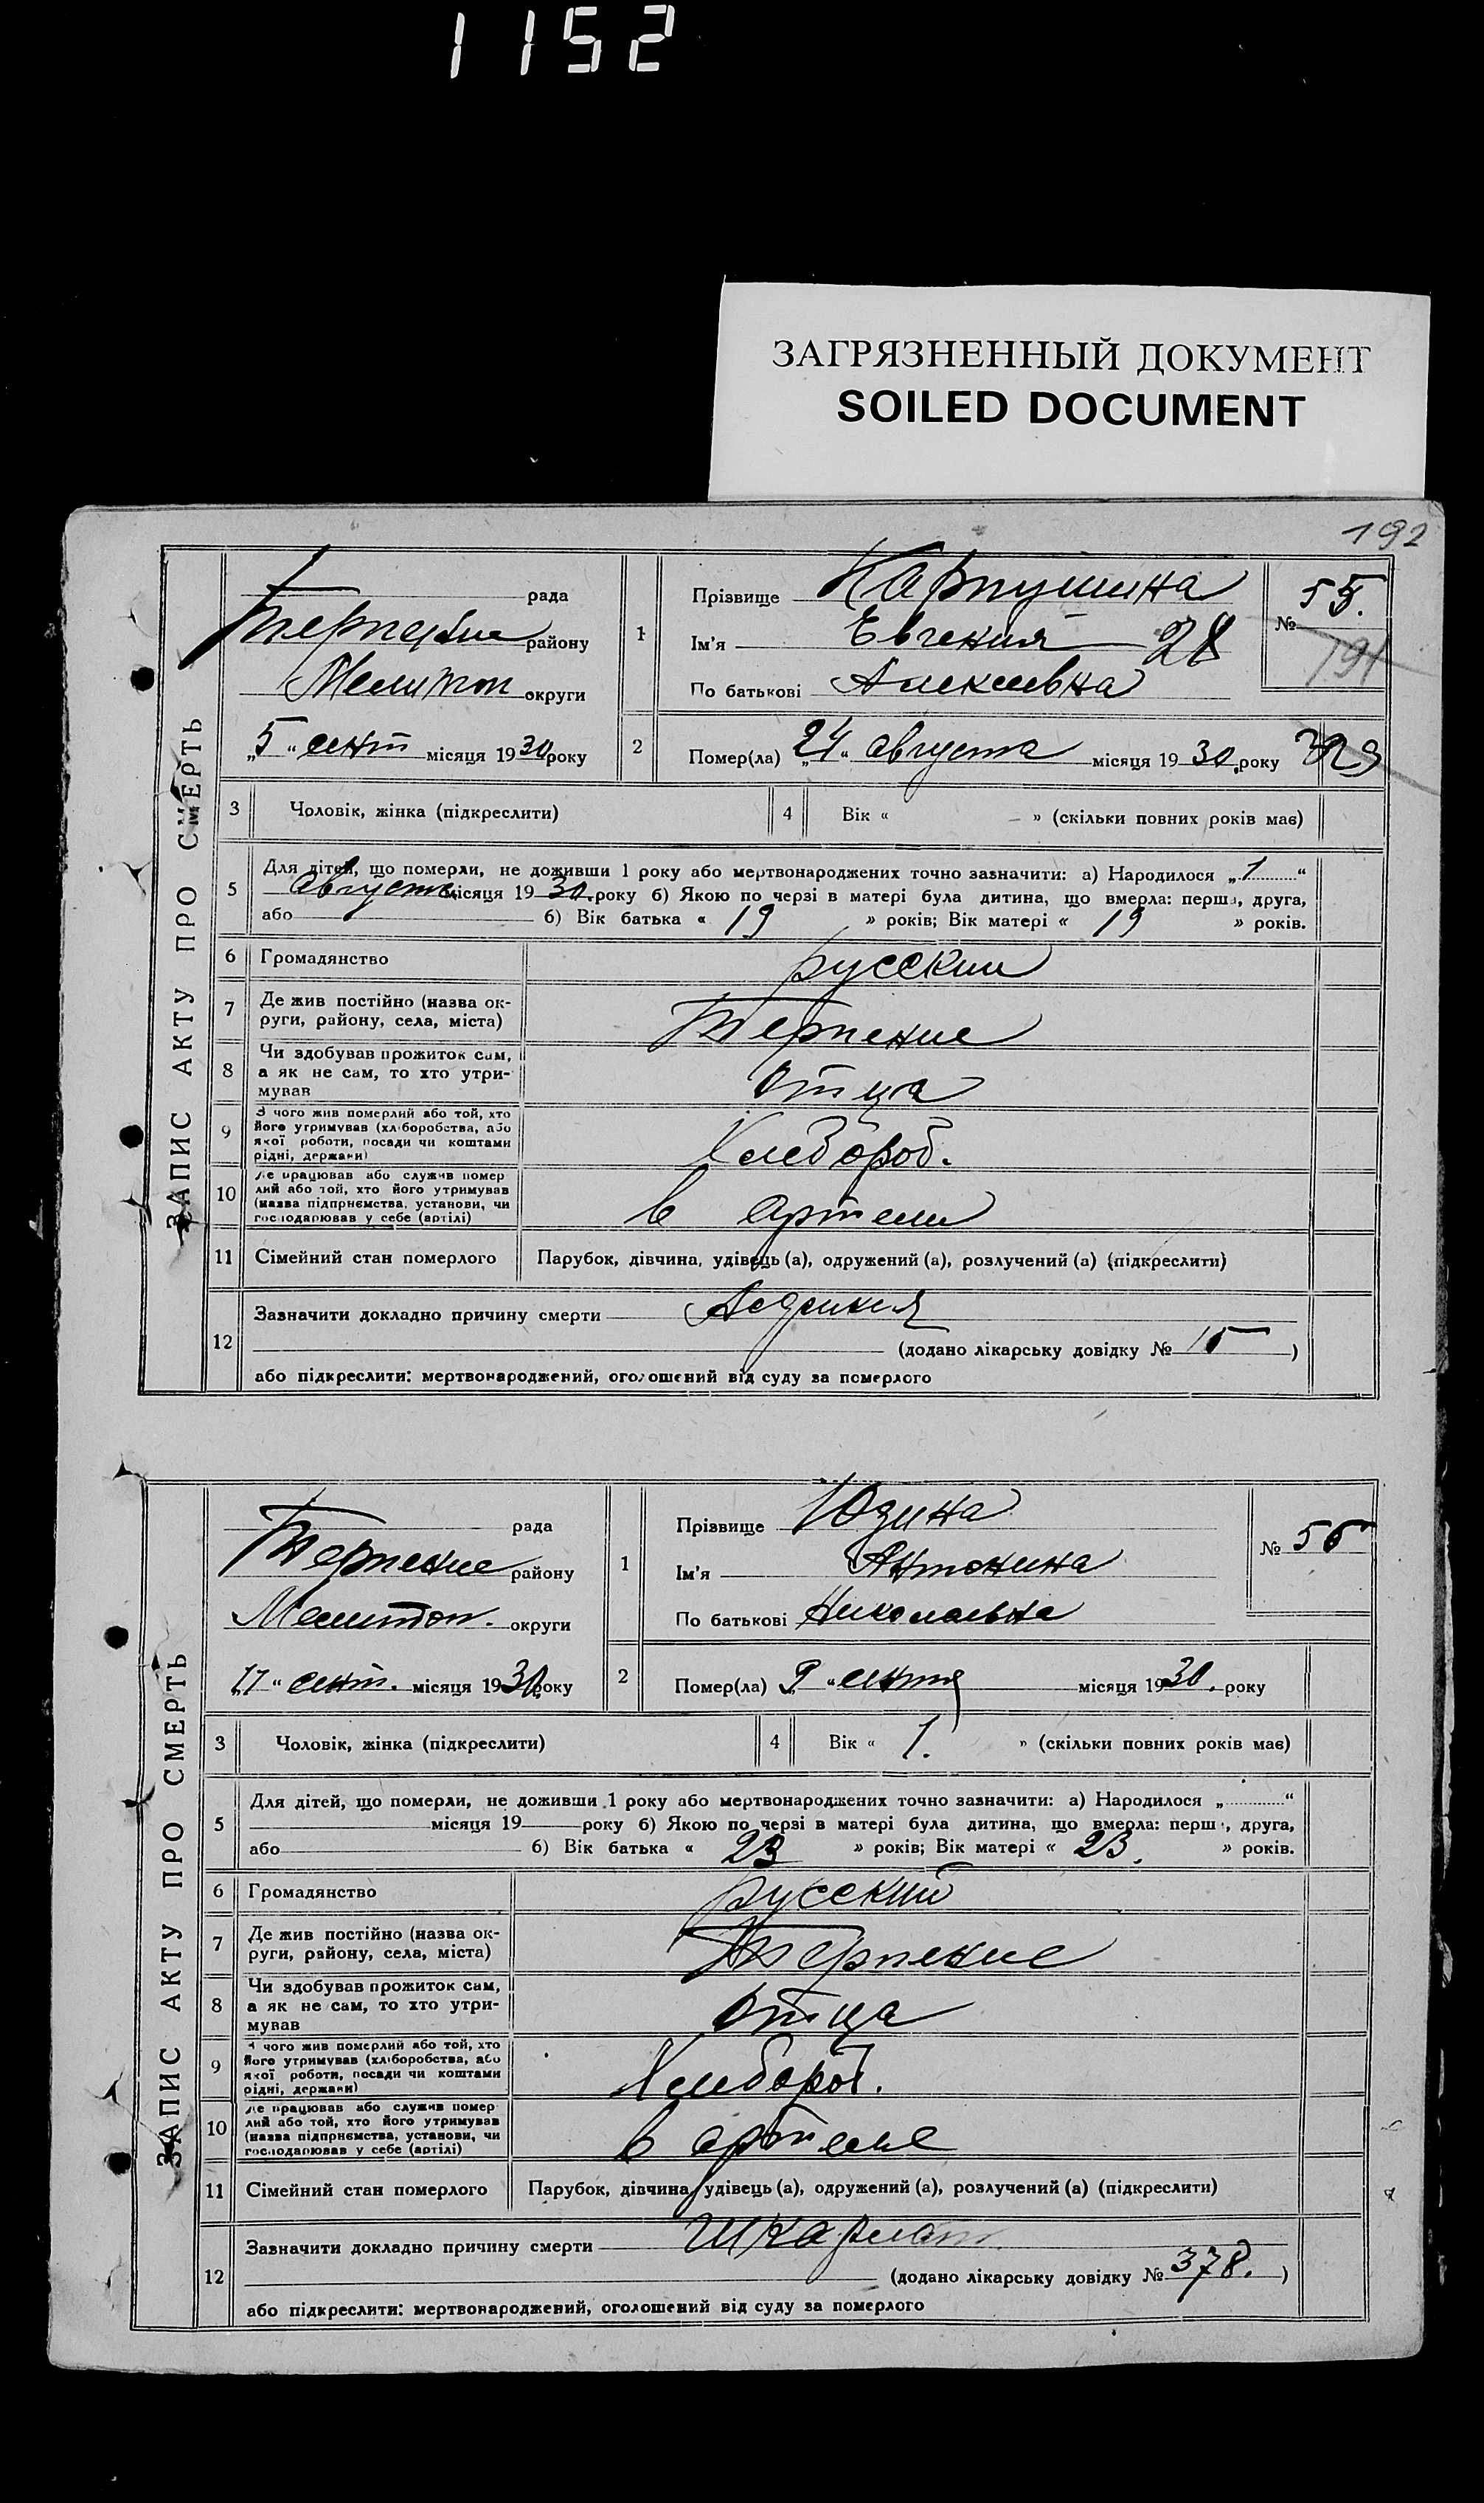 1152
ЗАГРЯЗНЕННЫЙ ДОКУМЕНТ
SOILED DOCUMENT
192
ЗАПИС АКТУ ПРО СМЕРТЬ
рада
району
Мелитоп округи
„5“ сент місяця 1930 року
1
Прізвище Карпушина
Ім'я Евгения 28
По батькові Алексеевна
№ 55.
191
2
Помер(ла) „24“ августа місяця 1930. року
3 Чоловік, жінка (підкреслити)
4 Вік « » (скільки повних років має)
5 Для дітей, що померли, не доживши 1 року або мертвонароджених точно зазначити: а) Народилося „1“
августа місяця 1930. року б) Якою по черзі в матері була дитина, що вмерла: перша, друга,
або б) Вік батька « 19 » років; Вік матері « 19 » років.
6 Громадянство русский
7 Де жив постійно (назва ок-
руги, району, села, міста) Терпение
8 Чи здобував прожиток сам,
а як не сам, то хто утри-
мував отца
9 З чого жив померлий або той, хто
його утримував (хліборобства, або
якої роботи, посади чи коштами
рідні, держави) Хлебороб.
10 Де працював або служив помер
лий або той, хто його утримував
(назва підприємства, установи, чи
господарював у себе (артілі) в артели
11 Сімейний стан померлого Парубок, дівчина, удівець (а), одружений (а), розлучений (а) (підкреслити)
12 Зазначити докладно причину смерти
(додано лікарську довідку № 15)
або підкреслити: мертвонароджений, оголошений від суду за померлого
ЗАПИС АКТУ ПРО СМЕРТЬ
рада
Терпение району
Мелитоп. округи
„11“ сент. місяця 1930 року
1
Прізвище Юдина
Ім'я Антонина
По батькові Николаевна
№ 56
2
Помер(ла) „9“ сентя місяця 1930. року
3 Чоловік, жінка (підкреслити)
4 Вік « 1. » (скільки повних років має)
5 Для дітей, що померли, не доживши 1 року або мертвонароджених точно зазначити: а) Народилося „ “
місяця 19 року б) Якою по черзі в матері була дитина, що вмерла: перша, друга,
або б) Вік батька « 23 » років; Вік матері « 23. » років.
6 Громадянство русский
7 Де жив постійно (назва ок-
руги, району, села, міста) Терпение
8 Чи здобував прожиток сам,
а як не сам, то хто утри-
мував отца
9 З чого жив померлий або той, хто
його утримував (хліборобства, або
якої роботи, посади чи коштами
рідні, держави) Хлебороб.
10 Де працював або служив помер
лий або той, хто його утримував
(назва підприємства, установи, чи
господарював у себе (артілі) в артеле
11 Сімейний стан померлого Парубок, дівчина, удівець (а), одружений (а), розлучений (а) (підкреслити)
12 Зазначити докладно причину смерти Шкарлат.
(додано лікарську довідку № 378.)
або підкреслити: мертвонароджений, оголошений від суду за померлого